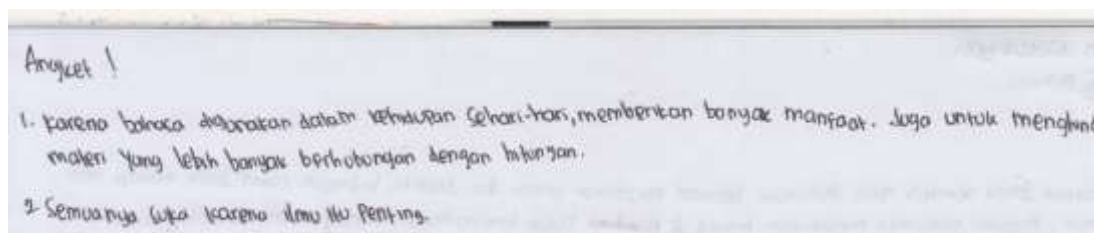 Angket !
1. karena bahasa digunakan dalam kehidupan sehari-hari, memberikan banyak manfaat. Juga untuk
materi yang lebih banyak berhubungan dengan hitungan.
2 Semuanya suka karena ilmu itu penting.